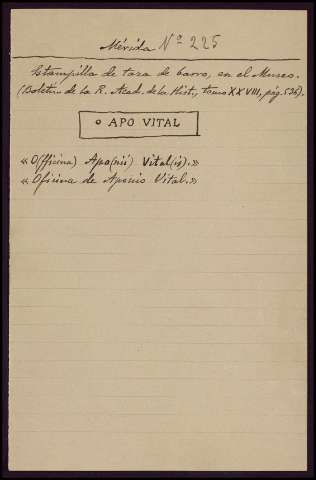 Mérida Nº 225
Estampilla de taza de barro, en el Museo.
(Boletín de la R. Acad. de la Hist., tomo XXVIII, pág. 536).
o APO VITAL
«O(fficina) Apo(nii) Vital(is).»
«Oficina de Aponio Vital.»